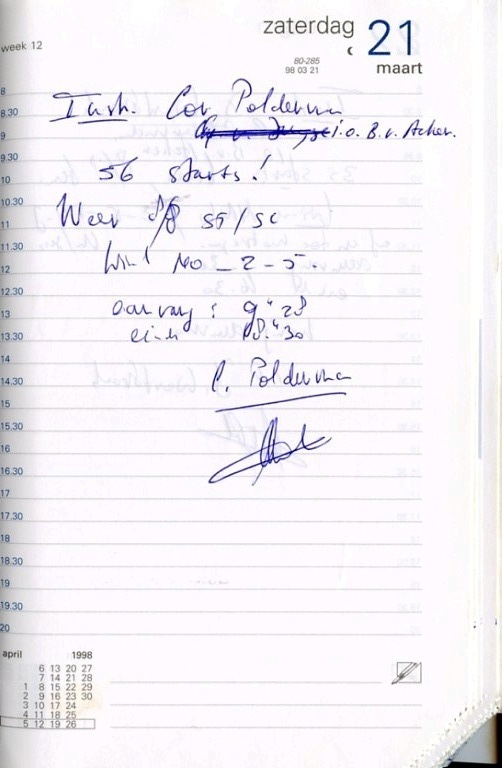 week 12
zaterdag 21
80-285
98 03 21
maart
8
8.30 Instr. Cor Polderman
9 i.o. B.v. Acher.
9.30
10 56 starts!
10.30
11 Weer ST/SC
11.30
12 Wind NO - 2 - 5.
12.30
13 aanvang : 9" 28
13.30 eind 18." 30
14
14.30 C. Polderman
15
15.30
16
16.30
17
17.30
18
18.30
19
19.30
20
april 1998
6 13 20 27
7 14 21 28
1 8 15 22 29
2 9 16 23 30
3 10 17 24
4 11 18 25
5 12 19 26